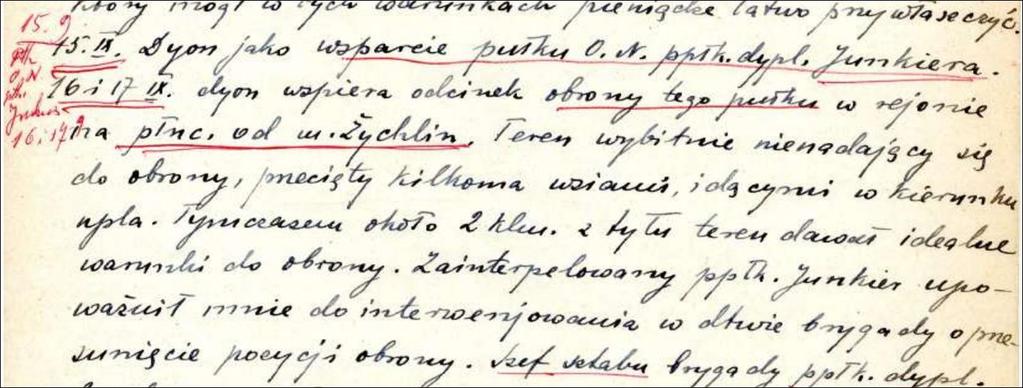 który mógł w tych warunkach pieniądze łatwo przywłaszczyć.
15.9
15.IX. Dyon jako wsparcie pułku O.N. ppłk. dypl. Junkiera.
płk O.N. płk. Junkier 16 i 17.9
16 i 17 IX. dyon wspiera odcinek obrony tego pułku w rejonie
na płnc. od m. Żychlin. Teren wybitnie nienadający się
do obrony, przecięty kilkoma wsiami, idącymi w kierunku
npla. Tymczasem około 2 klm. z tyłu teren dawał idealne
warunki do obrony. Zainterpelowany ppłk. Junkier upo-
ważnił mnie do interwenjowania w dtwie brygady o prze-
sunięcie pozycji obrony. Szef sztabu brygady ppłk. dypl.